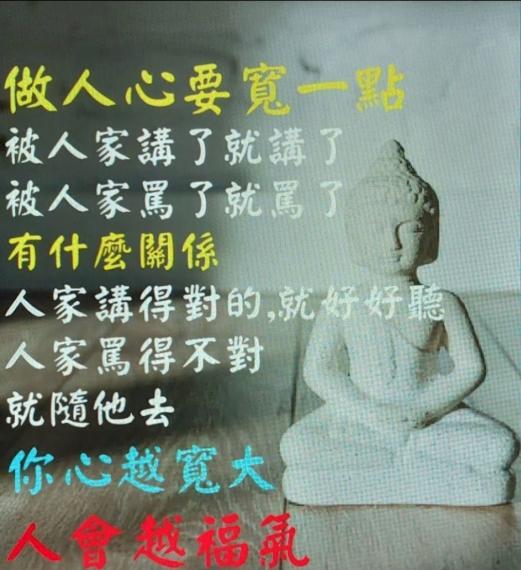 做人心要寬一點
被人家講了就講了
被人家罵了就罵了
有什麼關係
人家講得對的,就好好聽
人家罵得不對
就隨他去
你心越寬大
人會越福氣